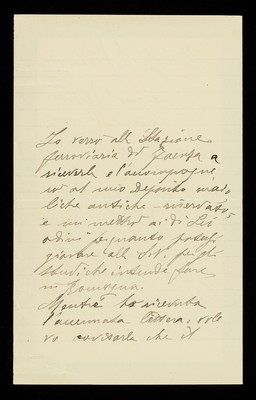 Io verrò alla Stazione
ferroviaria di Faenza a
riceverla e l'accompagne
rò al mio Deposito maio
liche antiche - riservato,
e mi metterò ai di Lei
ordini pe quanto potessi
giovare alla S.V. per gli
studi che intende fare
in Romagna.
Mentre ho ricevuta
l'accennata lettera, vole
vo avvisarla che il